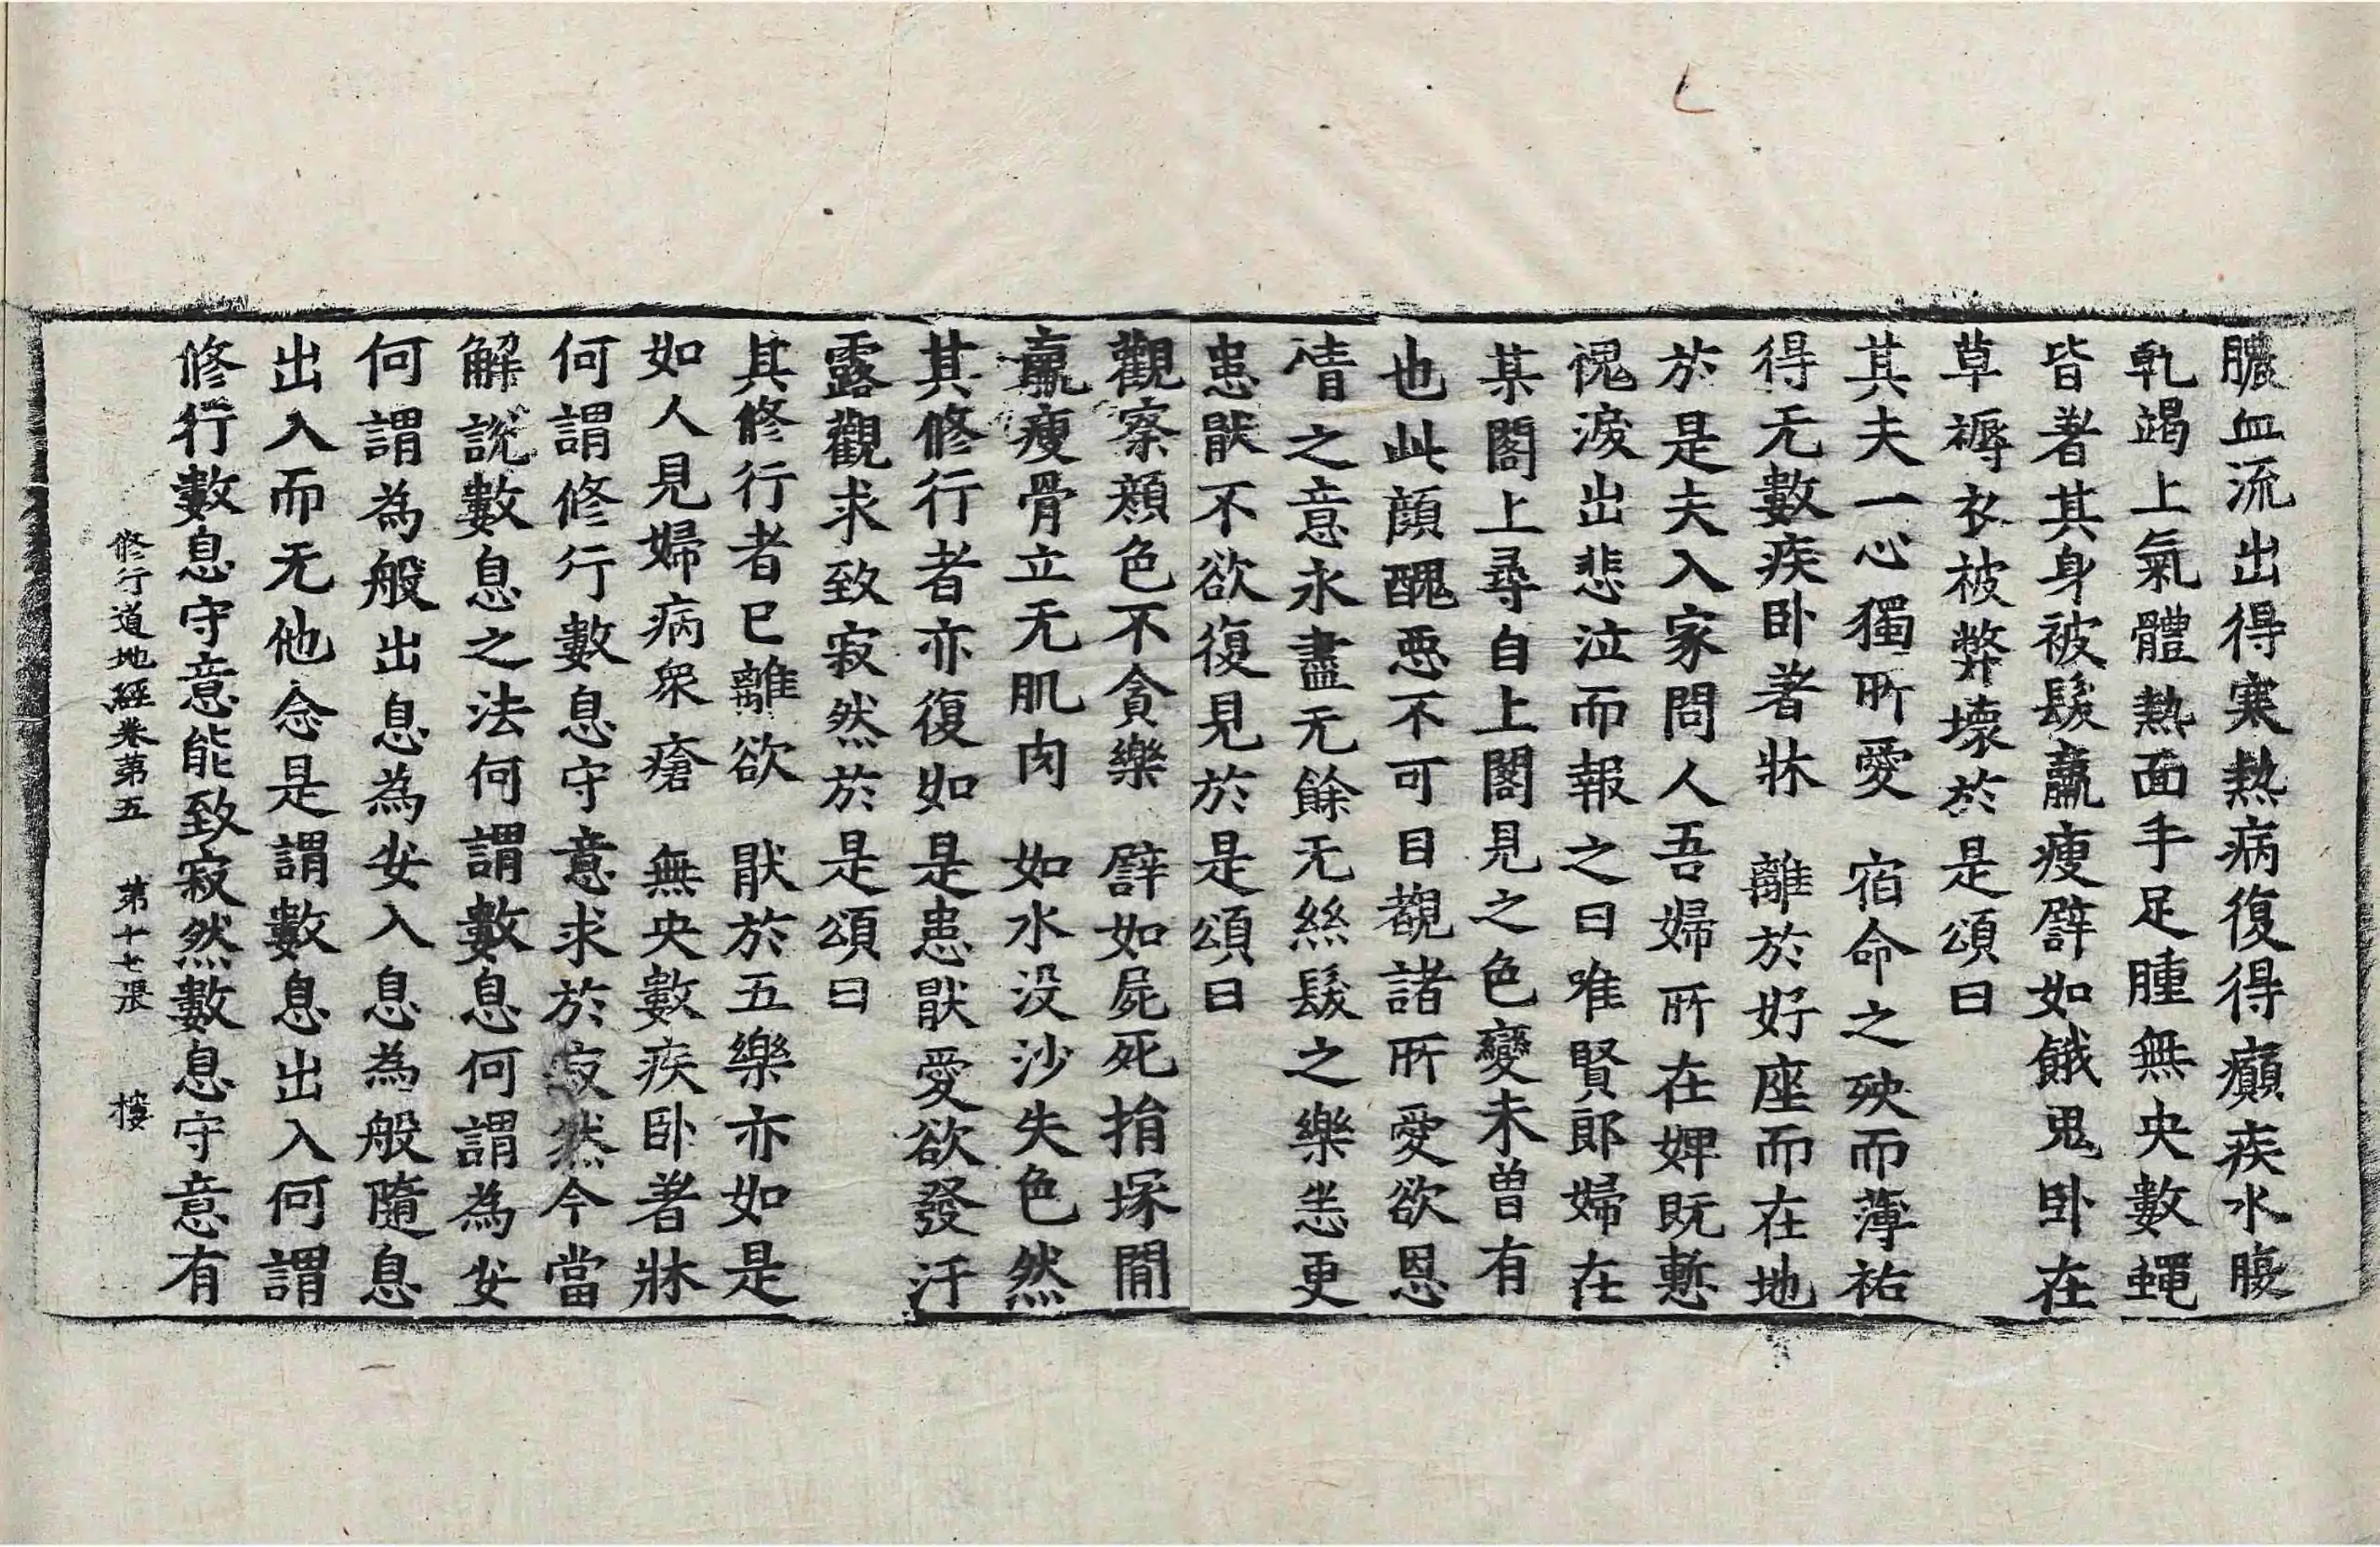 膿血流出得寒熱病復得癲疾水腹
乹竭上氣體熱面手足腫無央數蠅
皆著其身被髮羸瘦譬如餓鬼卧在
草褥衣被弊壞於是頌曰
其夫一心獨所愛　宿命之殃而薄祐
得无數疾卧著牀　離於好座而在地
於是夫入家問人吾婦所在婢既慙
愧淚出悲泣而報之曰唯賢郎婦在
某閣上尋自上閣見之色變未曾有
也此顔醜惡不可目覩諸所愛欲恩
情之意永盡无餘无絲髮之樂恙更
患猒不欲復見於是頌曰
觀察顔色不貪樂　譬如屍死捐塚閒
羸瘦骨立无肌肉　如水没沙失色然
其修行者亦復如是患猒愛欲發汙
露觀求致寂然於是頌曰
其修行者已離欲　猒於五樂亦如是
如人見婦病衆瘡　無央數疾卧著牀
何謂修行數息守意求於寂然今當
解說數息之法何謂數息何謂為安
何謂為般出息為安入息為般隨息
出入而无他念是謂數息出入何謂
修行數息守意能致寂然數息守意有
修行道地經卷第五　第十七張　樓